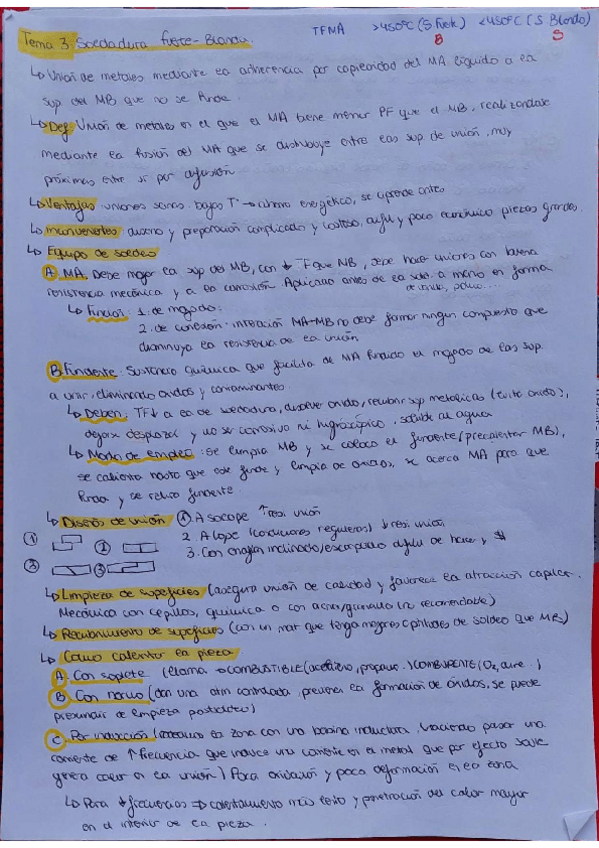 TFMA >450ºC (S Fuerte) <450ºC (S Blanda)
B S
Tema 3: Soldadura fuerte-Blanda.
↳ Unión de metales mediante la adherencia por capilaridad del MA líquido a la
sup del MB que no se funde.
↳ Def: Unión de metales en el que el MA tiene menor PF que el MB, realizándose
mediante la fusión del MA que se distribuye entre las sup de unión, muy
próximas entre sí por difusión
↳ Ventajas uniones sanas, bajas Tª → ahorro energético, se aprende antes
↳ Inconvenientes diseño y preparación complicado y costoso, difu y poco económico piezas grandes.
↳ Equipo de soldeo
A. MA. Debe mojar la sup del MB, con ↓ TF que MB, debe hacer uniones con buena
resistencia mecánica y a la corrosión. Aplicado antes de la sold. a mano en forma
de
↳ Función: 1. de mojado:
2. de conexión: interacción MA-MB no debe formar ningún compuesto que
disminuya la resistencia de la unión
B. Fundente: Sustancia química que facilita al MA fundido el mojado de las sup.
a unir, eliminando óxidos y contaminantes
↳ Deben: TF↓ a la de soldadura, disolver óxido, recubrir sup metálicas (evite óxido),
dejarse desplazar y no ser corrosivo ni higroscópico, soluble al agua
↳ Modo de empleo: se limpia MB y se coloca el fundente (precalentar MB),
se calienta hasta que este funde y limpia de óxidos, se acerca MA para que
funda y se retira fundente.
↳ Diseños de unión 1 A solape ↑resi unión
1 2 2. A tope (condiciones regulares) ↓ resi unión
3 3 3. Con ángulo inclinado/escarpado difu de hacer y $
↳ Limpieza de superficies (asegura unión de calidad y favorece la atracción capilar.
Mecánica con cepillos, química o con acero/granado (no recomendable)
↳ Recubrimiento de superficies (con un mat que tenga mejores aptitudes de soldeo que MB)
↳ Cómo calentar la pieza
A. Con soplete (llama → COMBUSTIBLE (acetileno, propano..) COMBURENTE (O₂, aire..)
B Con horno (dan una atm controlada, previenen la formación de óxidos, se puede
prescindir de limpieza posterior)
C. Por inducción (rodeamos la zona con una bobina inductora, haciendo pasar una
corriente de ↑ frecuencia que induce una corriente en el metal que por efecto Joule
genera calor en la unión) Poca oxidación y poca deformación en la zona
↳ Para ↓ frecuencias ⇒ calentamiento más lento y penetración del calor mayor
en el interior de la pieza.